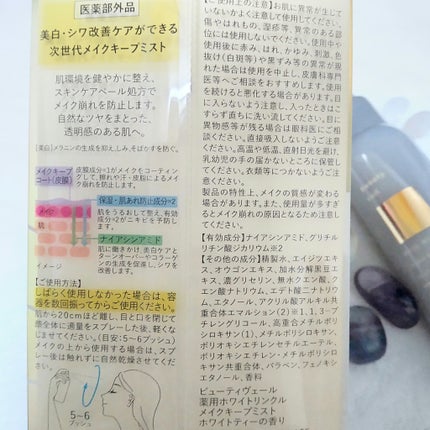 医薬部外品
美白・シワ改善ケアができる
次世代メイクキープミスト
肌環境を健やかに整え、
スキンケアベール処方で
メイク崩れを防止します。
自然なツヤをまとった、
透明感のある肌へ。
[美白]メラニンの生成を抑え、しみ、そばかすを防ぐ。
メイクキープ
コート(皮膜)
皮膜成分※1がメイクをコーティン
グして、擦れや汗・皮脂によるメイ
ク崩れを防止します。
保湿・肌あれ防止成分※2
肌をうるおして整え、有効
成分※2がニキビを予防し
ます。
ナイアシンアミド
肌に働きかけ、美白ケアと
ターンオーバーやコラーゲ
ンの生成を促進し、シワを
改善します。
肌
イメージ
【ご使用方法】
しばらく使用しなかった場合は、容
器を数回振ってからご使用ください。
肌から20cmほど離し、目と口を閉じて
顔全体に適量をスプレーした後、軽くな
じませてください。(目安:5~6プッシュ)
メイクの上から使用する場合は、スプ
レー後は触れずに自然乾燥させてくだ
さい。
5~6
プッシュ
【ご使用上の注意】お肌に異常が生じて
いないかよく注意して使用してください。
傷やはれもの、湿疹等、異常のある部
位には使用しないでください。使用中や
使用後に赤み、はれ、かゆみ、刺激、色
抜け(白斑等)や黒ずみ等の異常が現
れた場合は使用を中止し、皮膚科専門
医等へご相談をおすすめします。使用
を続けると悪化する場合があります。目
に入らないよう注意し、入ったときはこ
すらず直ちに洗い流してください。目に
異物感等が残る場合は眼科医にご相
談ください。直接吸入しないようご注意
ください。高温や低温、直射日光を避け、
乳幼児の手の届かないところに保管し
てください。衣類等につかないようご注
意ください。
製品の特性上、メイクの質感が変わる
場合があります。また、使用量が多すぎ
るとメイク崩れの原因となるため注意し
てください。
【有効成分】ナイアシンアミド、グリチル
リチン酸ジカリウム※2
【その他の成分】精製水、エイジツエキ
ス、オウゴンエキス、加水分解黒豆エキ
ス、濃グリセリン、無水クエン酸、クエン
酸ナトリウム、エデト酸二ナトリウ
ム、エタノール、アクリル酸アルキル共
重合体エマルション(2)※1、1、3-ブ
チレングリコール、高重合メチルポリシ
ロキサン(1)、メチルポリシロキサン、
ポリオキシエチレンセチルエーテル、
ポリオキシエチレン・メチルポリシロ
キサン共重合体、パラベン、フェノキシ
エタノール、香料
ビューティヴェール
薬用ホワイトリンクル
メイクキープミスト
ホワイトティーの香り